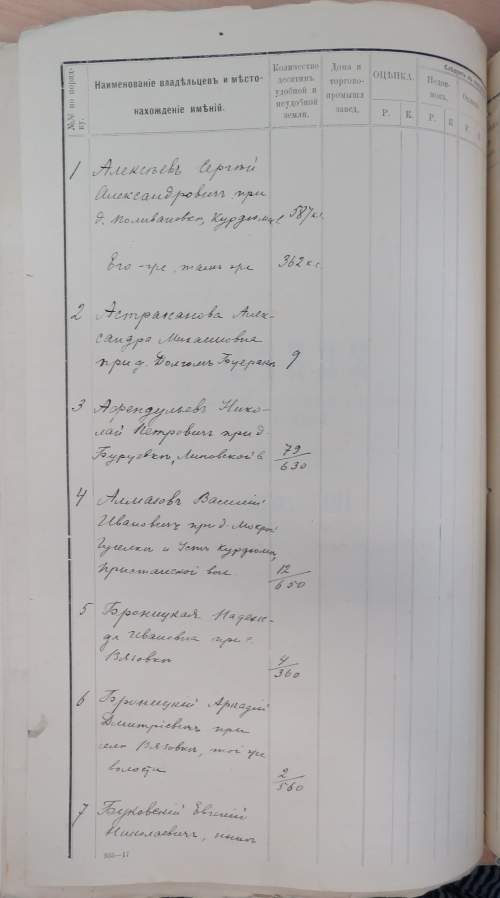 №№ по поряд-
ку.
Наименованіе владѣльцевъ и мѣсто-
нахожденіе имѣній.
Количество
десятинъ
удобной и
неудобной
земли.
Дома и
торгово-
промышл
завед.
ОЦѢНКА.
Р. К.
Недои-
мокъ.
Р. К.
Р.
1 Алексѣевъ Сергѣй
Александровичъ при
д. Поливановкѣ, Курдюм. 587 к.
Его-же, тамъ-же 362 к.
2 Астраханова Алек-
сандра Михайловна
при д. Долгомъ Буеракѣ 9
3 Афендульевъ Нико-
лай Петровичъ при д.
Буруовкѣ, Липовской в. 79
630
4 Алмазовъ Василій
Ивановичъ при д. Мокрой
и Усть Курдюмѣ,
Пристанской вол 12
650
5 Броницкая Надеж-
да Ивановна при с.
Вязовкѣ 4
360
6 Броницкій Аркадій
Дмитріевичъ при
селѣ Вязовкѣ, той же
волости 2
560
7 Буковскій Евгеній
Николаевичъ, нынѣ